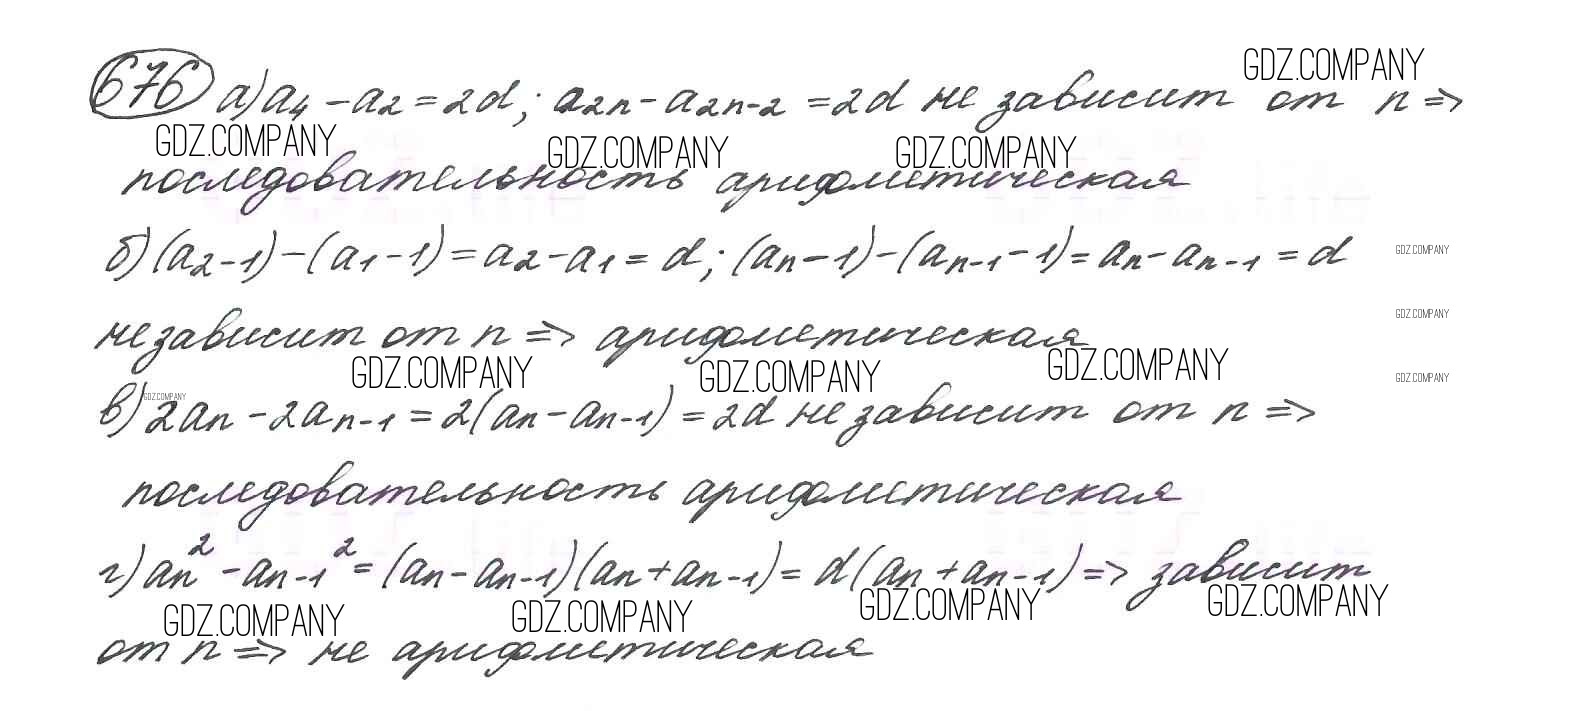 GDZ.COMPANY
676 а) a₄ - a₂ = 2d; a₂ₙ - a₂ₙ₋₂ = 2d не зависит от n =>
GDZ.COMPANY GDZ.COMPANY GDZ.COMPANY
последовательность арифметическая
б) (a₂-1) - (a₁-1) = a₂ - a₁ = d; (aₙ-1) - (aₙ₋₁-1) = aₙ - aₙ₋₁ = d
GDZ.COMPANY
GDZ.COMPANY
не зависит от n => арифметическая
GDZ.COMPANY GDZ.COMPANY GDZ.COMPANY
GDZ.COMPANY
GDZ.COMPANY
в) 2aₙ - 2aₙ₋₁ = 2(aₙ - aₙ₋₁) = 2d не зависит от n =>
последовательность арифметическая
г) aₙ² - aₙ₋₁² = (aₙ - aₙ₋₁)(aₙ + aₙ₋₁) = d(aₙ + aₙ₋₁) => зависит
GDZ.COMPANY GDZ.COMPANY GDZ.COMPANY GDZ.COMPANY
от n => не арифметическая